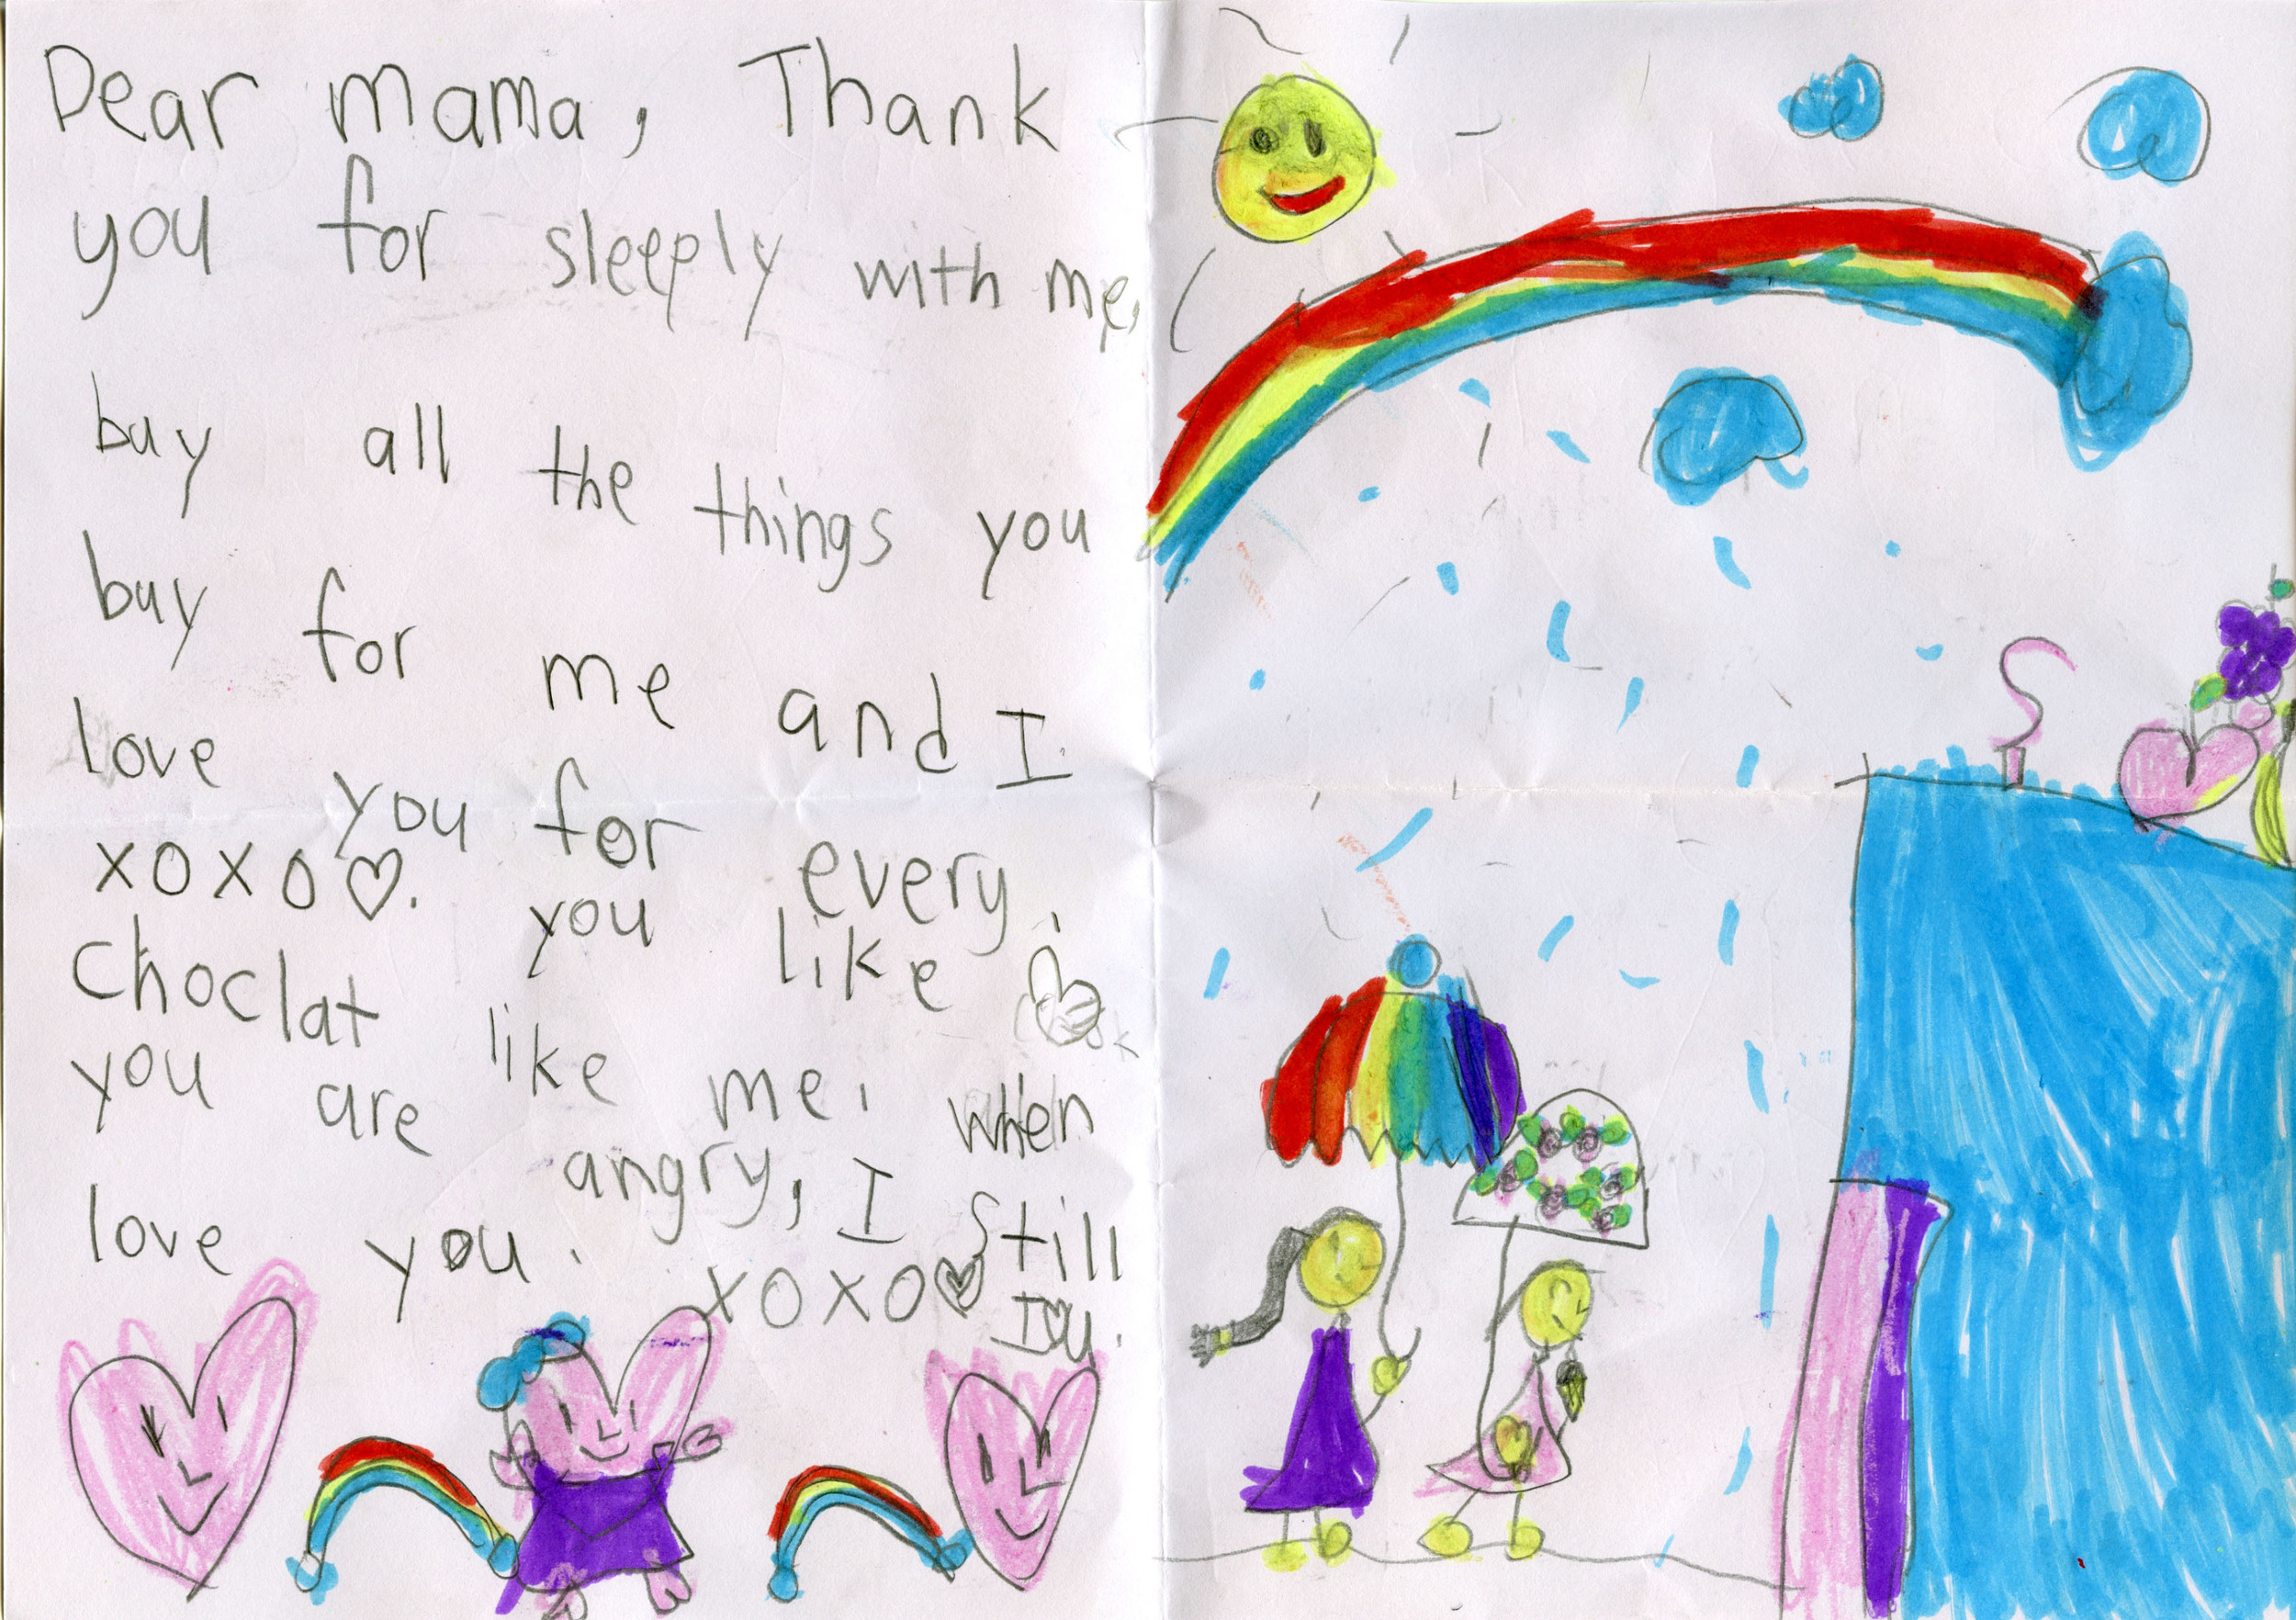 Dear mama, Thank
you for sleeply with me,
buy all the things you
buy for me and I
love you for every.
xoxo♡. you like
choclat like me. when
you are angry, I still
love you. xoxo♡ I♡u.